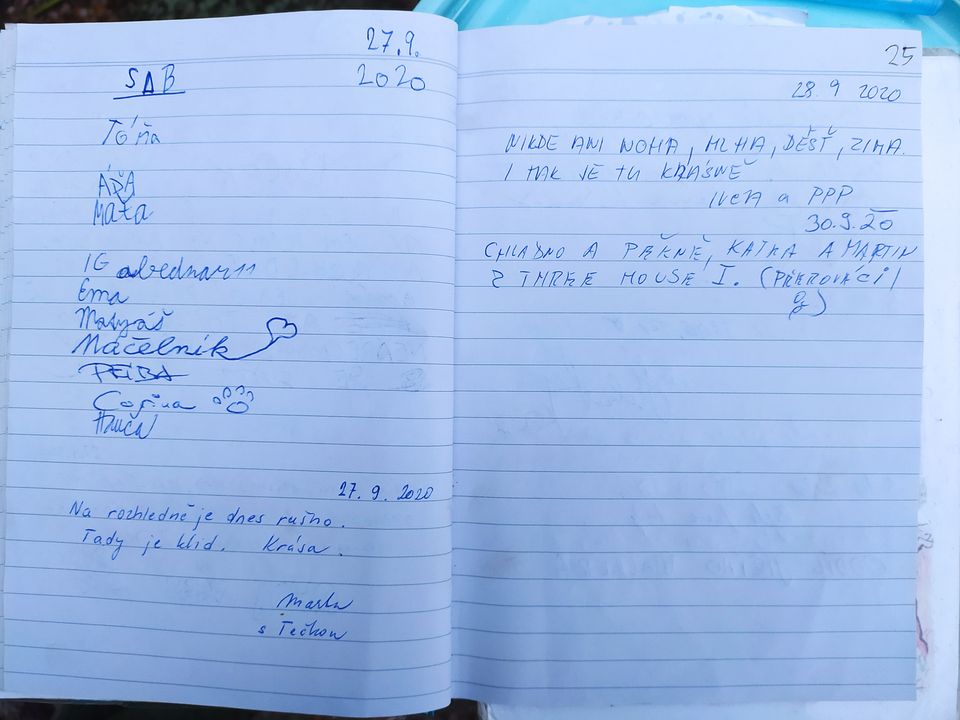 27.9.
2020
SAB
Tóňa
ÁĎA
Maťa
IG abednar11
Ema
Matyáš
Náčelník
Corina
Anča
27. 9. 2020
Na rozhledně je dnes rušno.
Tady je klid. Krása.
Marta
s Tečkou
25
28. 9 2020
NIKDE ANI NOHA, MLHA, DÉŠŤ, ZIMA.
I TAK JE TU KRÁSNĚ
IVETA a PPP
30.9.20
CHLADNO A PĚKNĚ, KATKA A MARTIN
Z THREE HOUSE I.